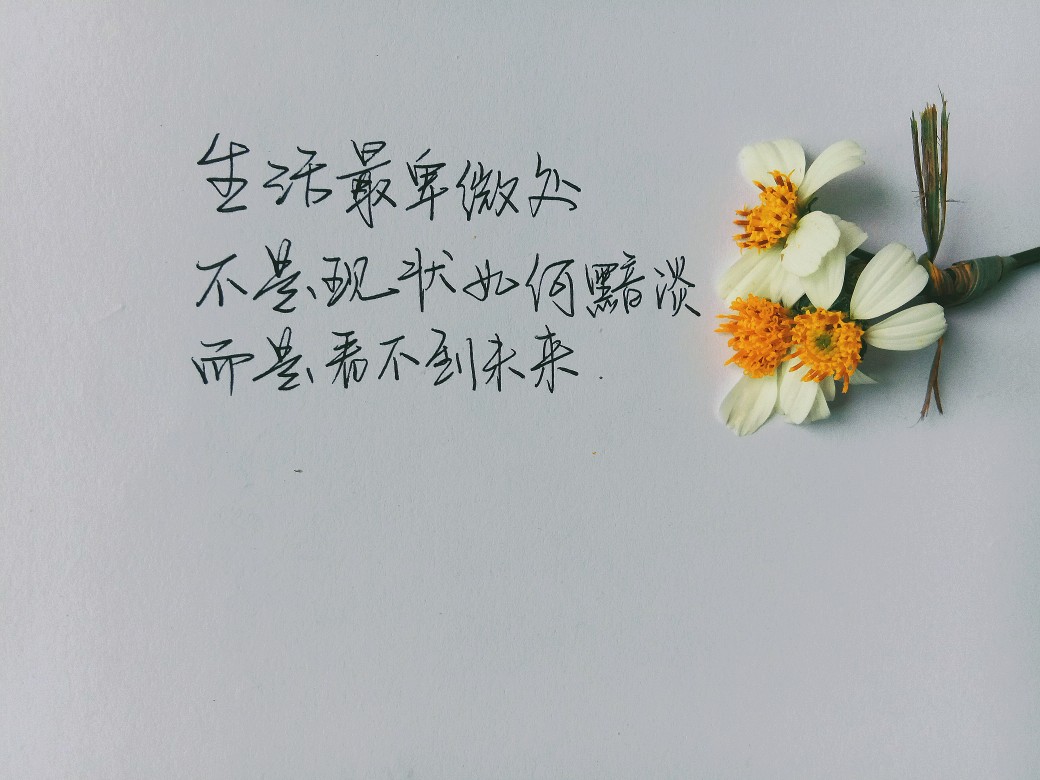 生活最卑微处
不是现状如何黯淡
而是看不到未来.